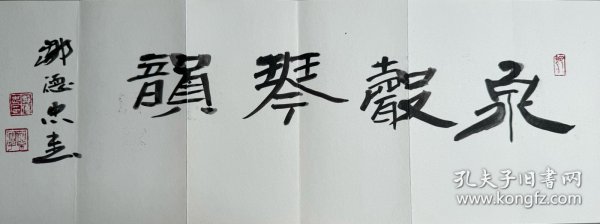 泉聲琴韻
德忠
孔夫子旧书网
www.kongfz.com